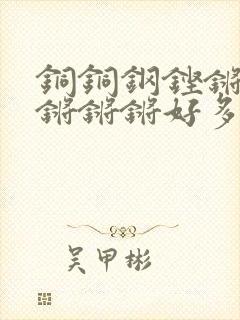 銅銅鋼鏗鏘
鏘鏘鏘好多
吴甲彬